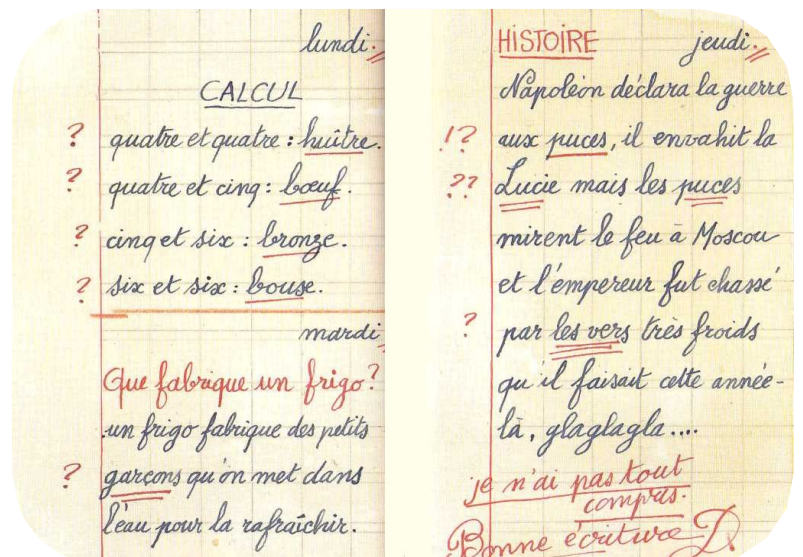 lundi.
CALCUL
? quatre et quatre : huître.
? quatre et cinq : bœuf.
? cinq et six : bronze.
? six et six : bouse.
mardi
Que fabrique un frigo ?
un frigo fabrique des petits
? garçons qu'on met dans
l'eau pour la rafraîchir.
HISTOIRE jeudi.
Napoléon déclara la guerre
!? aux puces, il envahit la
?? Lucie mais les puces
mirent le feu à Moscou
et l'empereur fut chassé
? par les vers très froids
qu'il faisait cette année-
là, glaglagla....
je n'ai pas tout
compris.
Bonne écriture